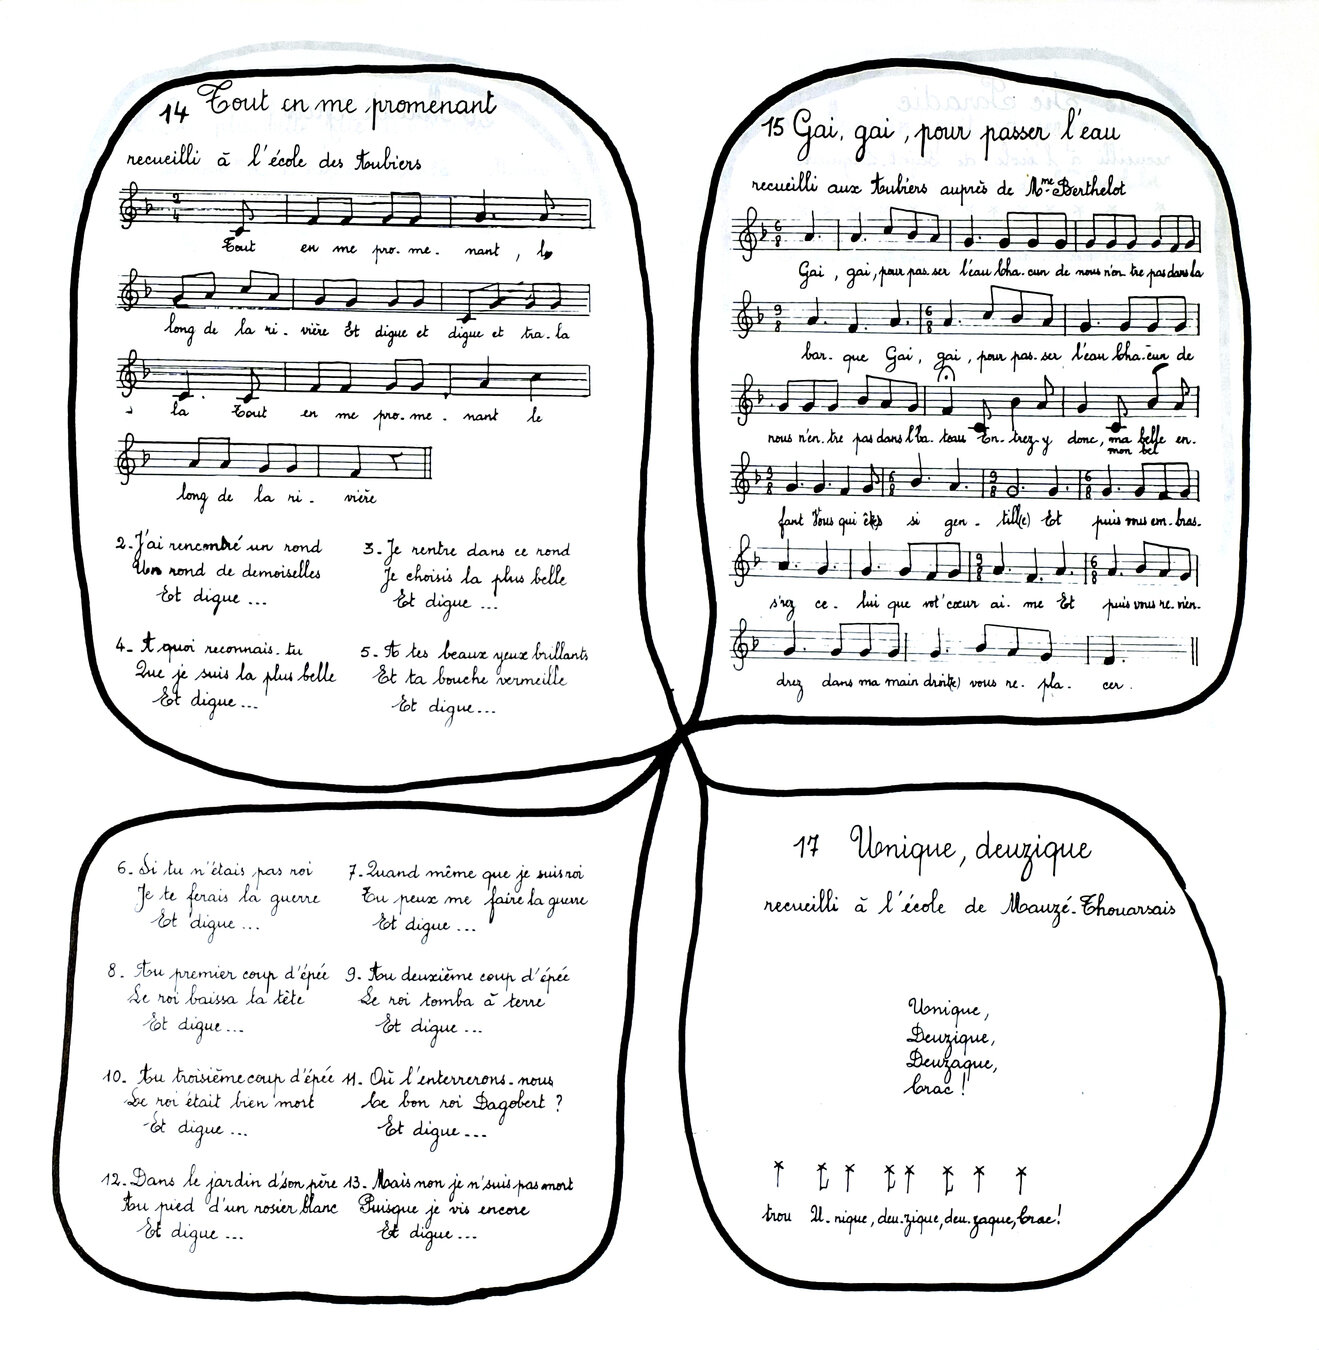 14 Tout en me promenant
recueilli à l'école des Aubiers
Tout en me pro. me. nant, le
long de la ri. vière Et digue et digue et tra. la
la Tout en me pro. me. nant le
long de la ri. vière
2. J'ai rencontré un rond
Un rond de demoiselles
Et digue ...
3. Je rentre dans ce rond
Je choisis la plus belle
Et digue ...
4. A quoi reconnais-tu
Que je suis la plus belle
Et digue ...
5. A tes beaux yeux brillants
Et ta bouche vermeille
Et digue ...
15 Gai, gai, pour passer l'eau
recueilli aux Aubiers auprès de Mme Berthelot
Gai, gai, pour pas. ser l'eau Cha. cun de nous n'en. tre pas dans la
bar. que Gai, gai, pour pas. ser l'eau Cha. cun de
nous n'en. tre pas dans l'ba. teau En. trez-y donc, ma belle en.
mon bel
fant Vous qui êt(e)s si gen. till(e) Et puis vous em. bras.
s'rez ce. lui que vot' cœur ai. me Et puis vous re. vien.
drez dans ma main droit(e) vous re. pla. cer.
6. Si tu n'étais pas roi
Je te ferais la guerre
Et digue ...
7. Quand même que je suis roi
Tu peux me faire la guerre
Et digue ...
8. Au premier coup d'épée
Le roi baissa la tête
Et digue ...
9. Au deuxième coup d'épée
Le roi tomba à terre
Et digue ...
10. Au troisième coup d'épée
Le roi était bien mort
Et digue ...
11. Où l'enterrerons-nous
Ce bon roi Dagobert ?
Et digue ...
12. Dans le jardin d'son père
Au pied d'un rosier blanc
Et digue ...
13. Mais non je n'suis pas mort
Puisque je vis encore
Et digue ...
17 Unique, deuzique
recueilli à l'école de Mauzé-Thouarsais
Unique,
Deuzique,
Deuzaque,
Crac !
trou U. nique, deu. zique, deu. zaque, Crac !